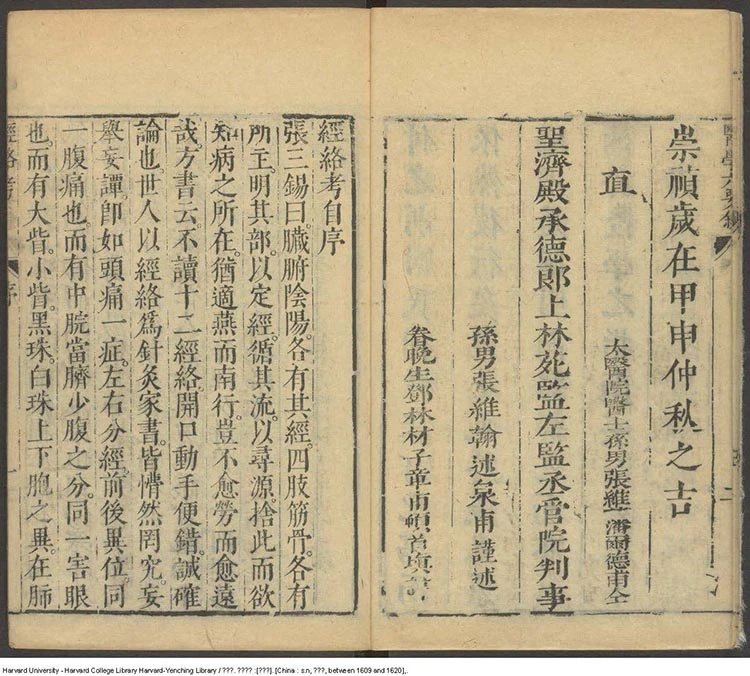 醫學六要
二
崇禎歲在甲申仲秋之吉
直 太醫院醫士孫男張維藩爾德甫仝
聖濟殿承德郎上林苑監左監丞官院判事
孫男張維翰述泉甫謹述
眷晚生鄧林材子章甫頓首填諱
經絡考自序
張三錫曰。臟腑陰陽。各有其經。四肢筋骨。各有
所主。明其部。以定經。循其流。以尋源。捨此而欲
知病之所在。猶適燕而南行。豈不愈勞而愈遠
哉。方書云。不讀十二經絡。開口動手便錯。誠確
論也。世人以經絡爲針灸家書。皆懵然罔究。妄
舉妄譚。卽如頭痛一症。左右分經。前後異位。同
一腹痛也。而有中脘當臍少腹之分。同一害眼
也。而有大眥。小眥。黑珠。白珠。上下胞之異。在肺
經絡考 序 一
Harvard University - Harvard College Library Harvard-Yenching Library / ???. ???? :[???]. [China : s.n, ???, between 1609 and 1620],.